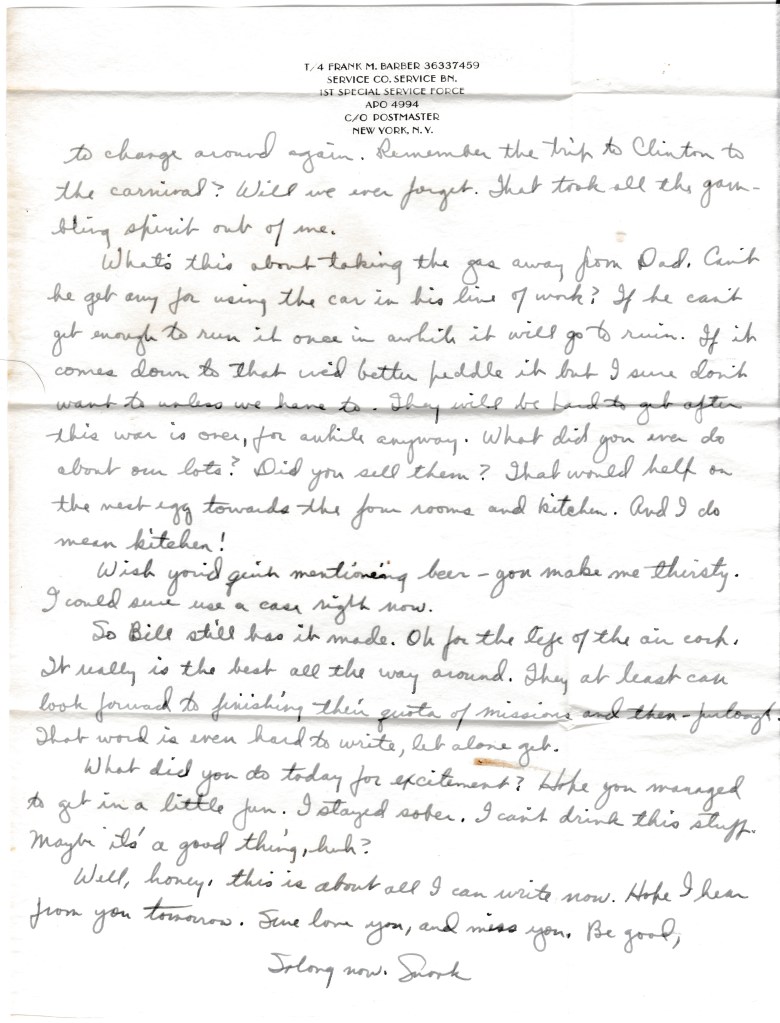 T/4 FRANK M. BARBER 36337459
SERVICE CO. SERVICE BN.
1ST SPECIAL SERVICE FORCE
APO 4994
C/O POSTMASTER
NEW YORK, N.Y.
to change around again. Remember the trip to Clinton to
the carnival? Will we ever forget. That took all the gam-
bling spirit out of me.
What's this about taking the gas away from Dad. Can't
he get any for using the car in his line of work? If he can't
get enough to run it once in awhile it will go to ruin. If it
comes down to that we'd better peddle it but I sure don't
want to unless we have to. They will be hard to get after
this war is over, for awhile anyway. What did you ever do
about our lots? Did you sell them? That would help on
the nest egg towards the four rooms and kitchen. And I do
mean kitchen!
Wish you'd quit mentioning beer – you make me thirsty.
I could sure use a case right now.
So Bill still has it made. Oh for the life of the air cork.
It really is the best all the way around. They at least can
look forward to finishing their quota of missions and then – furlough.
That word is even hard to write, let alone get.
What did you do today for excitement? Hope you managed
to get in a little fun. I stayed sober. I can't drink this stuff.
Maybe it's a good thing, huh?
Well, honey, this is about all I can write now. Hope I hear
from you tomorrow. Sure love you, and miss you. Be good,
Solong now. Snork